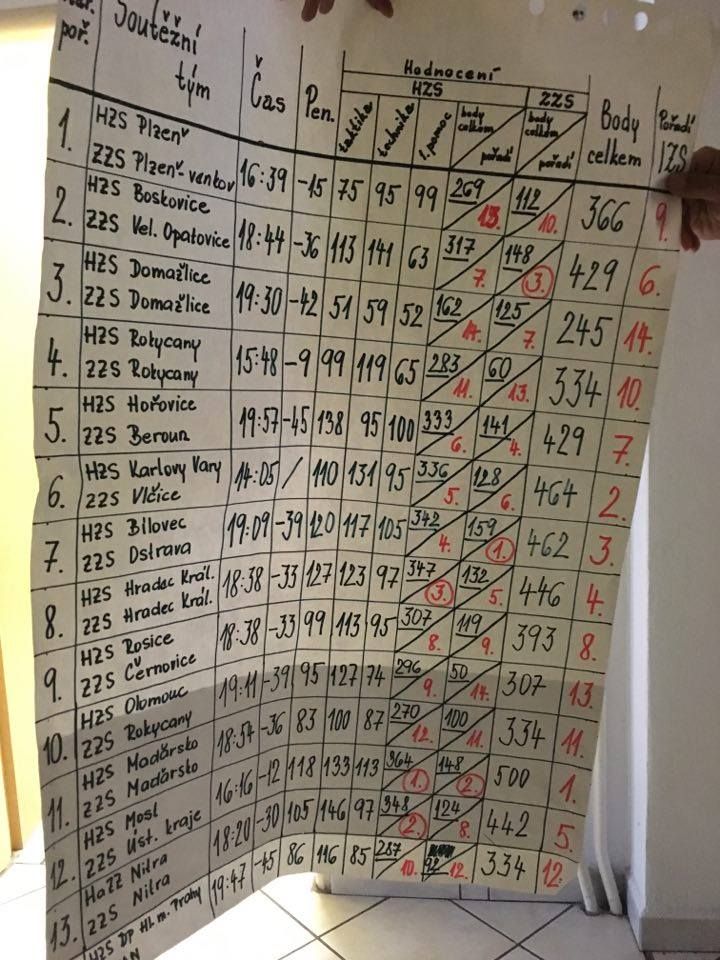 poř.
Soutěžní
tým
Čas
Pen.
Hodnocení
HZS
ZZS
taktika
technika
1. pomoc
body celkem
pořadí
body celkem
pořadí
Body
celkem
Pořadí
IZS
1. HZS Plzeň
ZZS Plzeň venkov
16:39 -15 75 95 99 269 13. 112 10. 366 9.
2. HZS Boskovice
ZZS Vel. Opatovice
18:44 -36 113 141 63 317 7. 148 3. 429 6.
3. HZS Domažlice
ZZS Domažlice
19:30 -42 51 59 52 162 14. 125 7. 245 14.
4. HZS Rokycany
ZZS Rokycany
15:48 -9 99 119 65 283 11. 60 13. 334 10.
5. HZS Hořovice
ZZS Beroun
19:57 -45 138 95 100 333 6. 141 4. 429 7.
6. HZS Karlovy Vary
ZZS Vlčice
14:05 / 110 131 95 336 5. 128 6. 464 2.
7. HZS Bílovec
ZZS Ostrava
19:09 -39 120 117 105 342 4. 159 1. 462 3.
8. HZS Hradec Král.
ZZS Hradec Král.
18:38 -33 127 123 97 347 3. 132 5. 446 4.
9. HZS Rosice
ZZS Černovice
18:38 -33 99 113 95 307 8. 119 9. 393 8.
10. HZS Olomouc
ZZS Rokycany
19:11 -39 95 127 74 296 9. 50 14. 307 13.
11. HZS Maďarsko
ZZS Maďarsko
18:54 -36 83 100 87 270 12. 100 11. 334 11.
12. HZS Most
ZZS Úst. kraje
16:16 -12 118 133 113 364 1. 148 2. 500 1.
13. HaZZ Nitra
ZZS Nitra
18:20 -30 105 146 97 348 2. 124 8. 442 5.
HZS DP Hl. m. Prahy
19:47 -45 86 116 85 287 10. 92 12. 334 12.